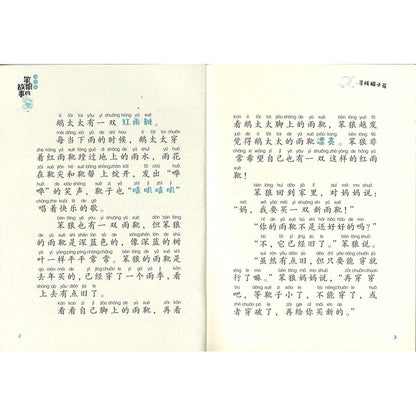 笨狼的故事
鹅太太有一双红雨靴。
每当下雨的时候,鹅太太穿
着红雨靴蹚过地上的雨水,雨花
在靴尖和靴帮上绽开,发出“哗
哗”的笑声,靴子也“咕叽咕叽”
唱着快乐的歌。
笨狼也有一双雨靴,但笨狼
的雨靴是深蓝色的,像深蓝的树
叶一样平平常常。笨狼的雨靴是
去年买的,已经穿了一个雨季,看
上去有点旧了。
看看自己脚上的雨靴,再看
2
寻找猫小花
看鹅太太脚上的雨靴,笨狼越发
觉得鹅太太的雨靴漂亮。当笨狼非
常希望自己也有一双这样的红雨
靴。
笨狼回到家里,对妈妈说:
“妈,我要买一双新雨靴!”
“你的雨靴不是还好好的吗?”
“不,它已经旧了。”笨狼说。
“虽然有点旧,但只要能穿就
行了嘛。”笨狼妈妈说,“再穿穿
吧,等靴子小了,不能穿了,或
者穿破了,再给你买新的。”
3